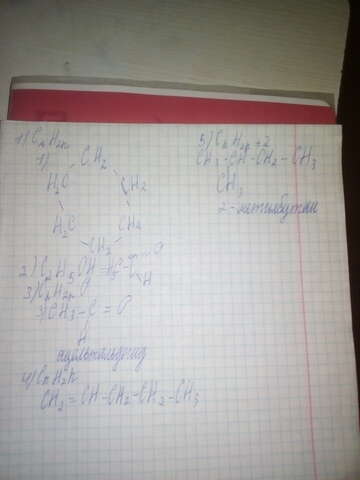 1) CnH2n
1)
CH2
H2C CH2
H2C CH2
CH2
2) C2H5 CH = C - C = O
H
3) CnH2n O
3) CH3 - C = O
H
4) CnH2n
CH2 = CH - CH2 - CH2 - CH3
5) CnH2n+2
CH3 - CH - CH2 - CH3
CH3
2-метилбутан